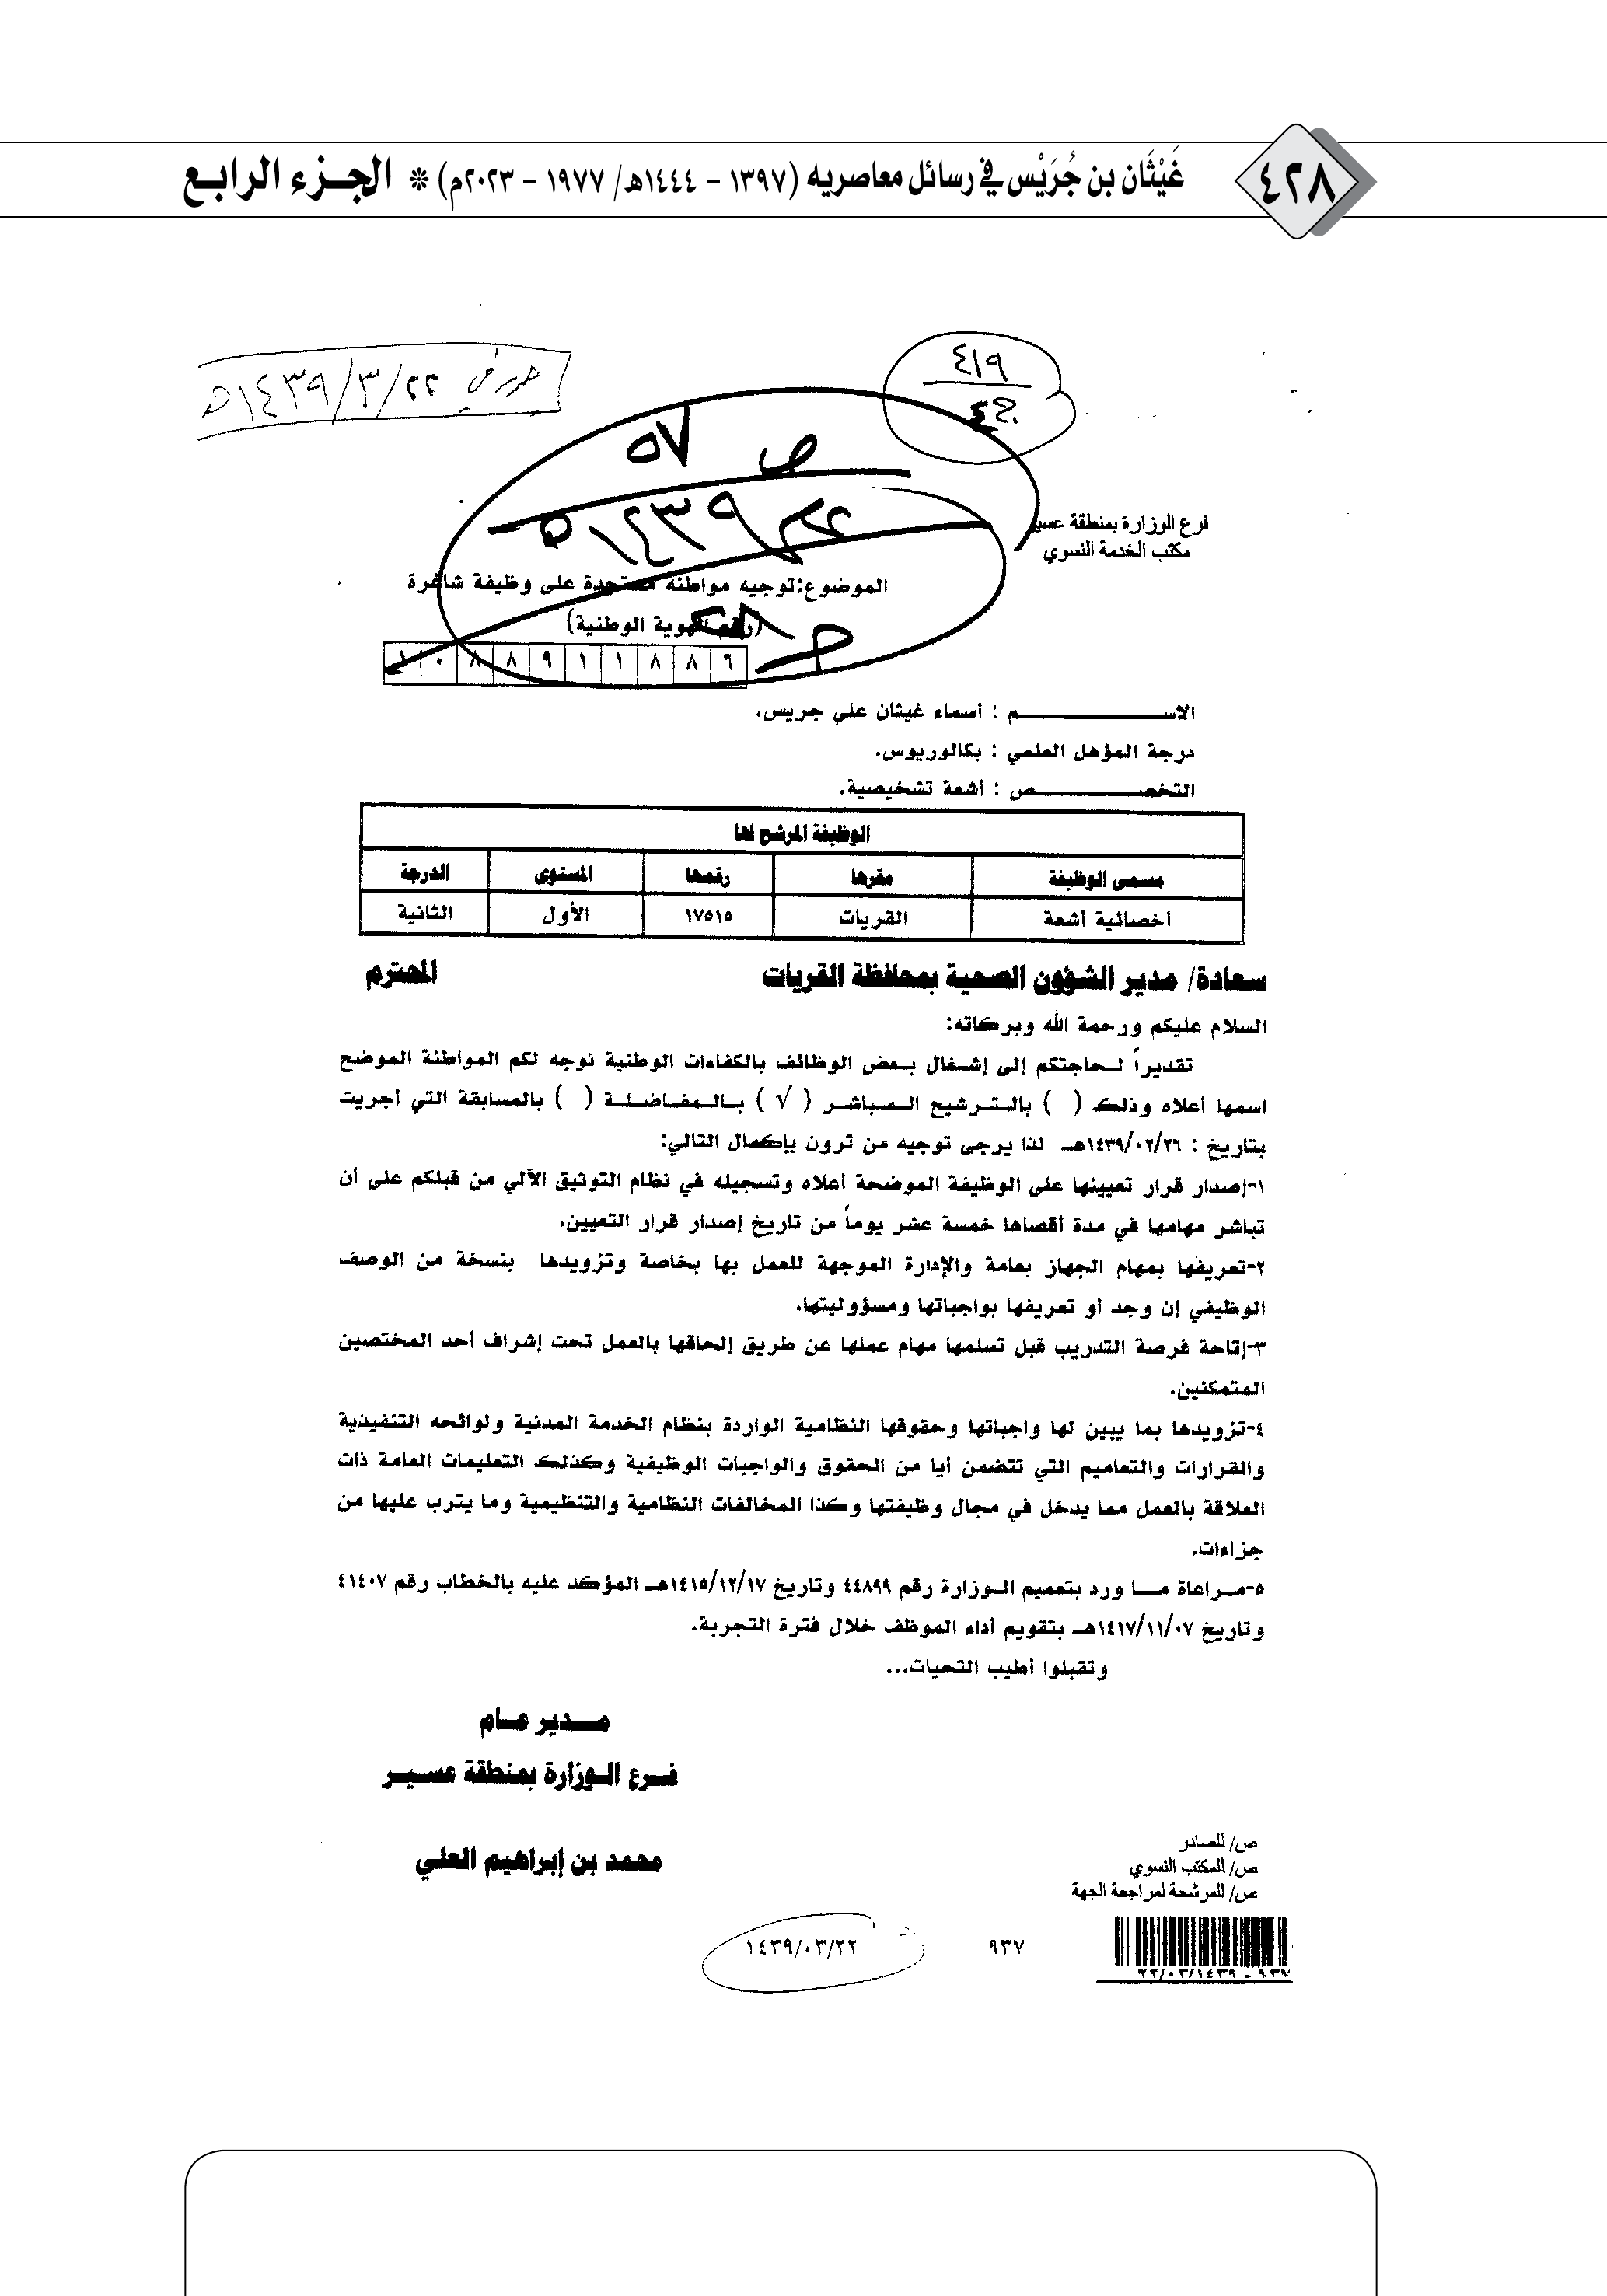 ٤٢٨
غَيْثَان بن جُرَيْس في رسائل معاصريه (١٣٩٧ - ١٤٤٤هـ/ ١٩٧٧ - ٢٠٢٣م) * الجـزء الرابـع
٤١٩
حرر في ٢٢/٣/١٤٣٩هـ
ص ٥٧
١٤٣٩هـ
فرع الوزارة بمنطقة عسير
مكتب الخدمة النسوي
الموضوع:توجيه مواطنه مستجدة على وظيفة شاغرة
(رقم الهوية الوطنية)
١ ٠ ٨ ٨ ٩ ١ ١ ٨ ٨ ٦
الاســـــم : أسماء غيثان علي جريس.
درجة المؤهل العلمي : بكالوريوس.
التخصــــص : أشعة تشخيصية.
الوظيفة المرشح لها
مسمى الوظيفة مقرها رقمها المستوى الدرجة
أخصائية أشعة القريات ١٧٥١٥ الأول الثانية
سعادة/ مدير الشؤون الصحية بمحافظة القريات المحترم
السلام عليكم ورحمة الله وبركاته:
تقديراً لـحاجتكم إلى إشـغال بـعض الوظائف بالكفاءات الوطنية نوجه لكم المواطنة الموضح
اسمها أعلاه وذلك ( ) بالـتـرشيح الـمـباشـر ( √ ) بـالـمفـاضـلـة ( ) بالمسابقة التي أجريت
بتاريخ : ١٤٣٩/٠٢/٢٦هـ لذا يرجى توجيه من ترون بإكمال التالي:
١-إصدار قرار تعيينها على الوظيفة الموضحة أعلاه وتسجيله في نظام التوثيق الألي من قبلكم على أن
تباشر مهامها في مدة أقصاها خمسة عشر يوماً من تاريخ إصدار قرار التعيين.
٢-تعريفها بمهام الجهاز بعامة والإدارة الموجهة للعمل بها بخاصة وتزويدها بنسخة من الوصف
الوظيفي إن وجد أو تعريفها بواجباتها ومسؤوليتها.
٣-إتاحة فرصة التدريب قبل تسلمها مهام عملها عن طريق إلحاقها بالعمل تحت إشراف أحد المختصين
المتمكنين.
٤-تزويدها بما يبين لها واجباتها وحقوقها النظامية الواردة بنظام الخدمة المدنية ولوائحه التنفيذية
والقرارات والتعاميم التي تتضمن أيا من الحقوق والواجبات الوظيفية وكذلك التعليمات العامة ذات
العلاقة بالعمل مما يدخل في مجال وظيفتها وكذا المخالفات النظامية والتنظيمية وما يترب عليها من
جزاءات.
٥-مـراعاة مـا ورد بتعميم الـوزارة رقم ٤٤٨٩٩ وتاريخ ١٤١٥/١٢/١٧هـ المؤكد عليه بالخطاب رقم ٤١٤٠٧
وتاريخ ١٤١٧/١١/٠٧هـ بتقويم أداء الموظف خلال فترة التجربة.
وتقبلوا أطيب التحيات...
مــدير عـام
فـرع الـوزارة بمنطقة عسـيـر
محمد بن إبراهيم العلي
ص/ للصادر
ص/ للمكتب النسوي
ص/ للمرشحة لمراجعة الجهة
٩٣٧ ١٤٣٩/٠٣/٢٢
٩٣٧ - ٢٢/٠٣/١٤٣٩